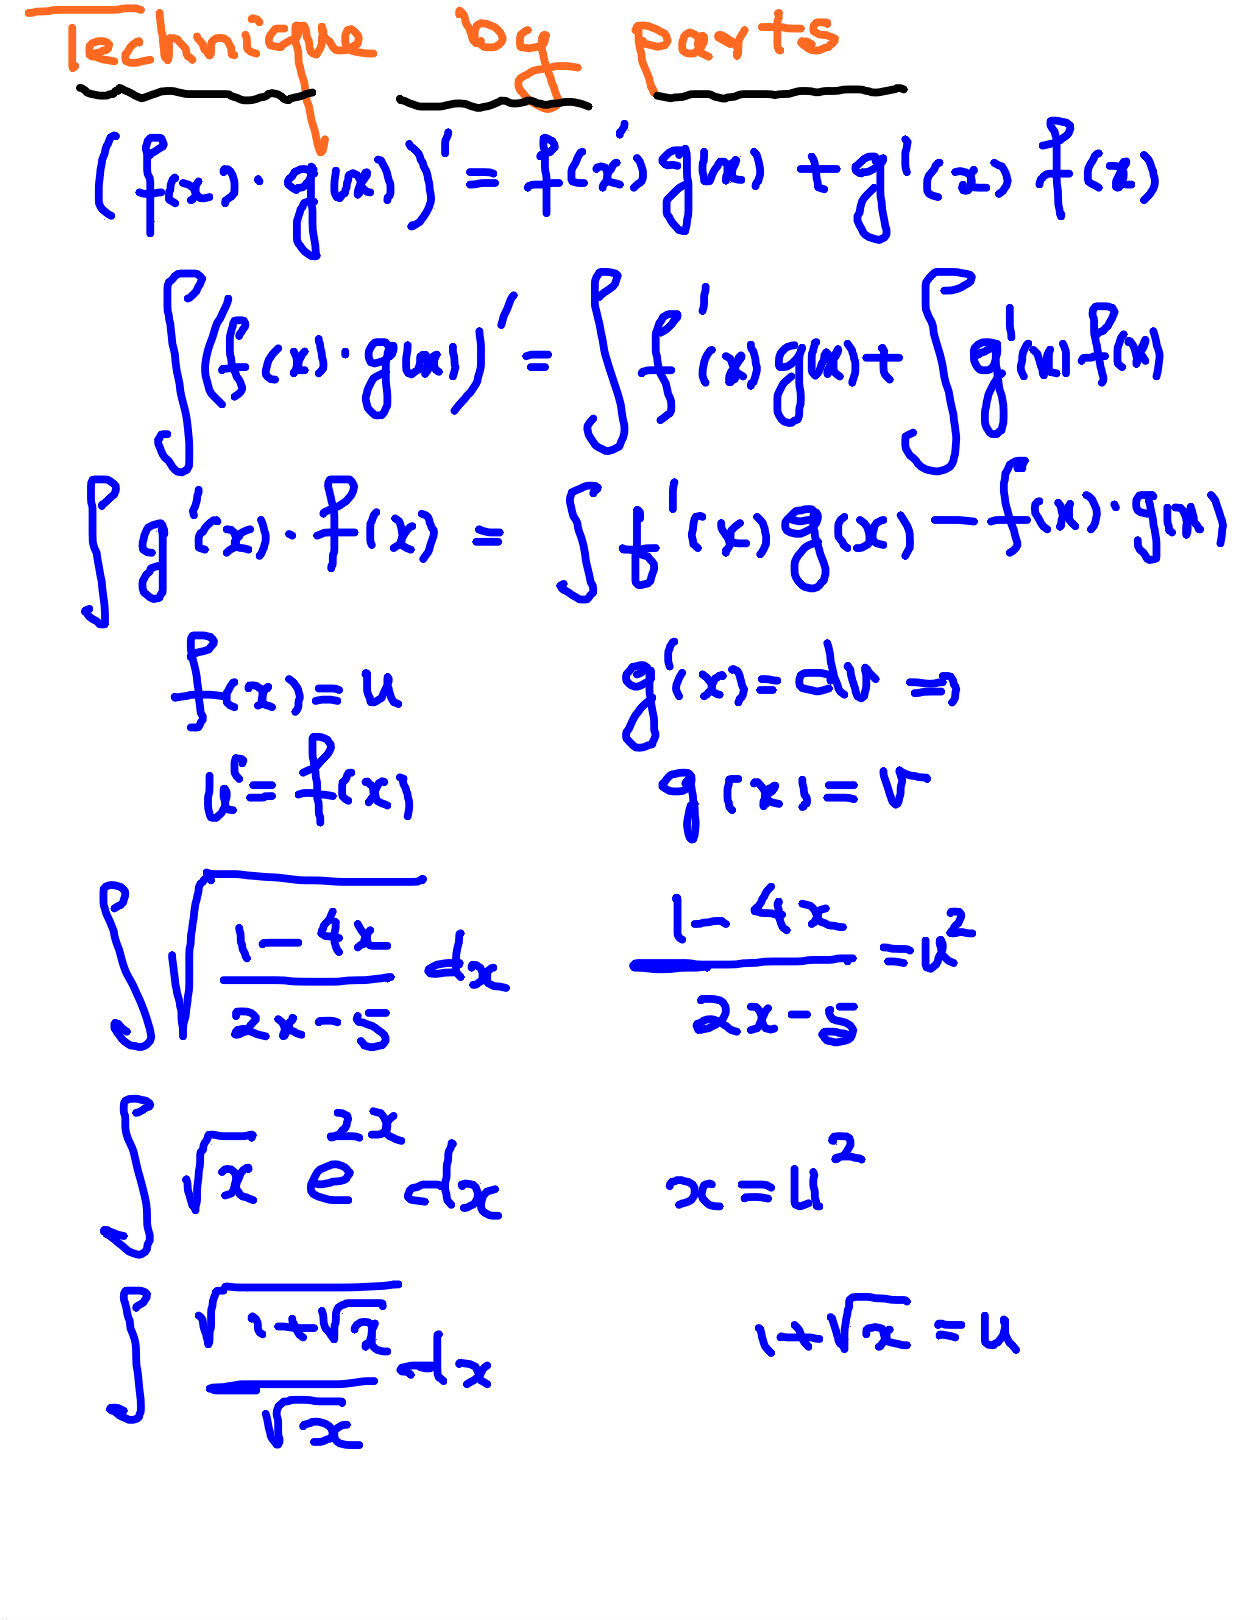 Technique by parts
(f(x) · g(x))' = f(x)' g(x) + g'(x) f(x)
∫(f(x) · g(x))' = ∫f'(x) g(x) + ∫g'(x) f(x)
∫g'(x) · f(x) = ∫f'(x) g(x) − f(x) · g(x)
f(x) = u g'(x) = dv ⇒
u' = f(x) g(x) = v
∫√((1−4x)/(2x−5)) dx (1−4x)/(2x−5) = u²
∫√x e^(2x) dx x = u²
∫√(1+√x)/√x dx 1+√x = u